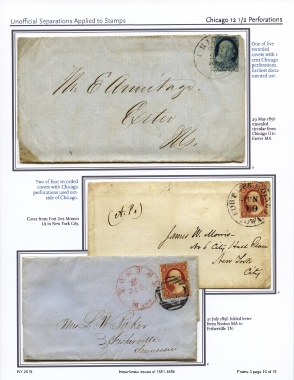 Unofficial Separations Applied to Stamps
Chicago 12 1/2 Perforations
One of five
recorded
covers with 1
cent Chicago
perforations.
Earliest docu-
mented use.
Mr. E Armitage.
Exeter
Ms.
29 May 1856
unsealed
circular from
Chicago Il to
Exeter MA
Two of four recorded
covers with Chicago
perforations used out-
side of Chicago.
Cover from Fort Des Moines
IA to New York City.
James W. Morris
No 6 City Hall Place
New York
City
Mrs L W Baker
Fisherville
Tennessee
21 July 1856 folded letter
from Boston MA to
Fisherville TN.
Imperforate Issues of 1851-1856